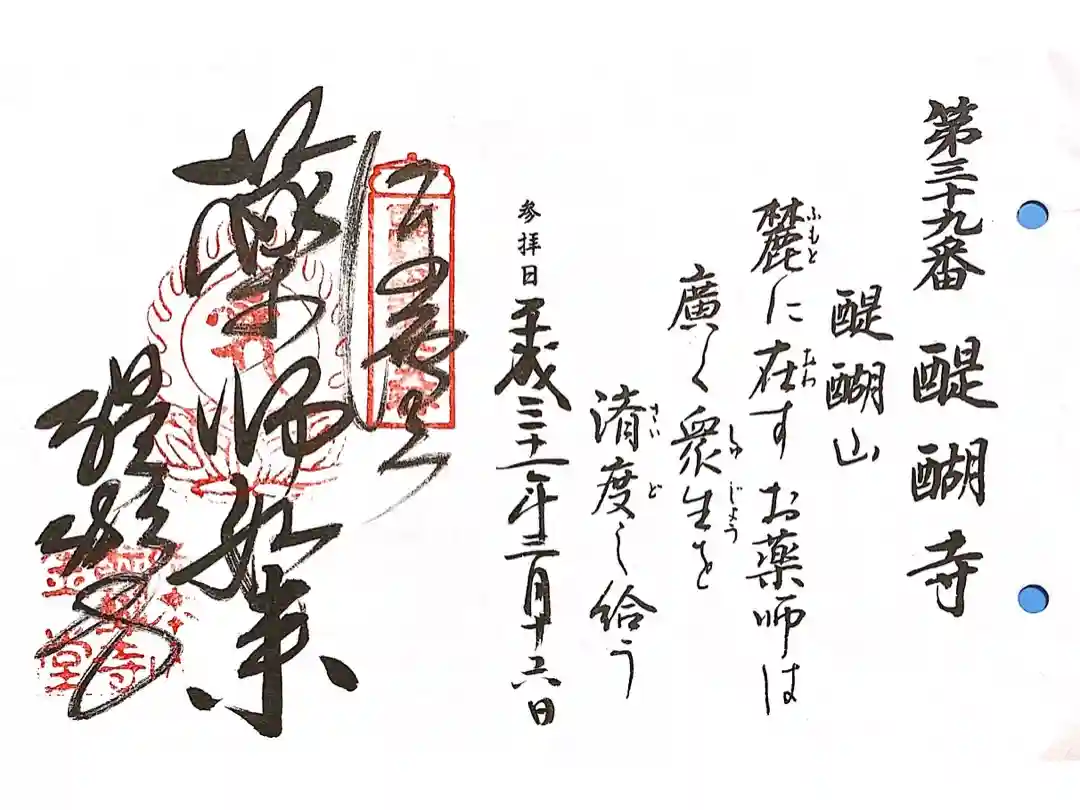 第三十九番 醍醐寺
醍醐山
麓に在す お薬師は
ふもと おわ
廣く衆生を
しゅじょう
済度し給う
さいど
参拝日 平成三十一年三月十六日
薬師如来
醍醐寺